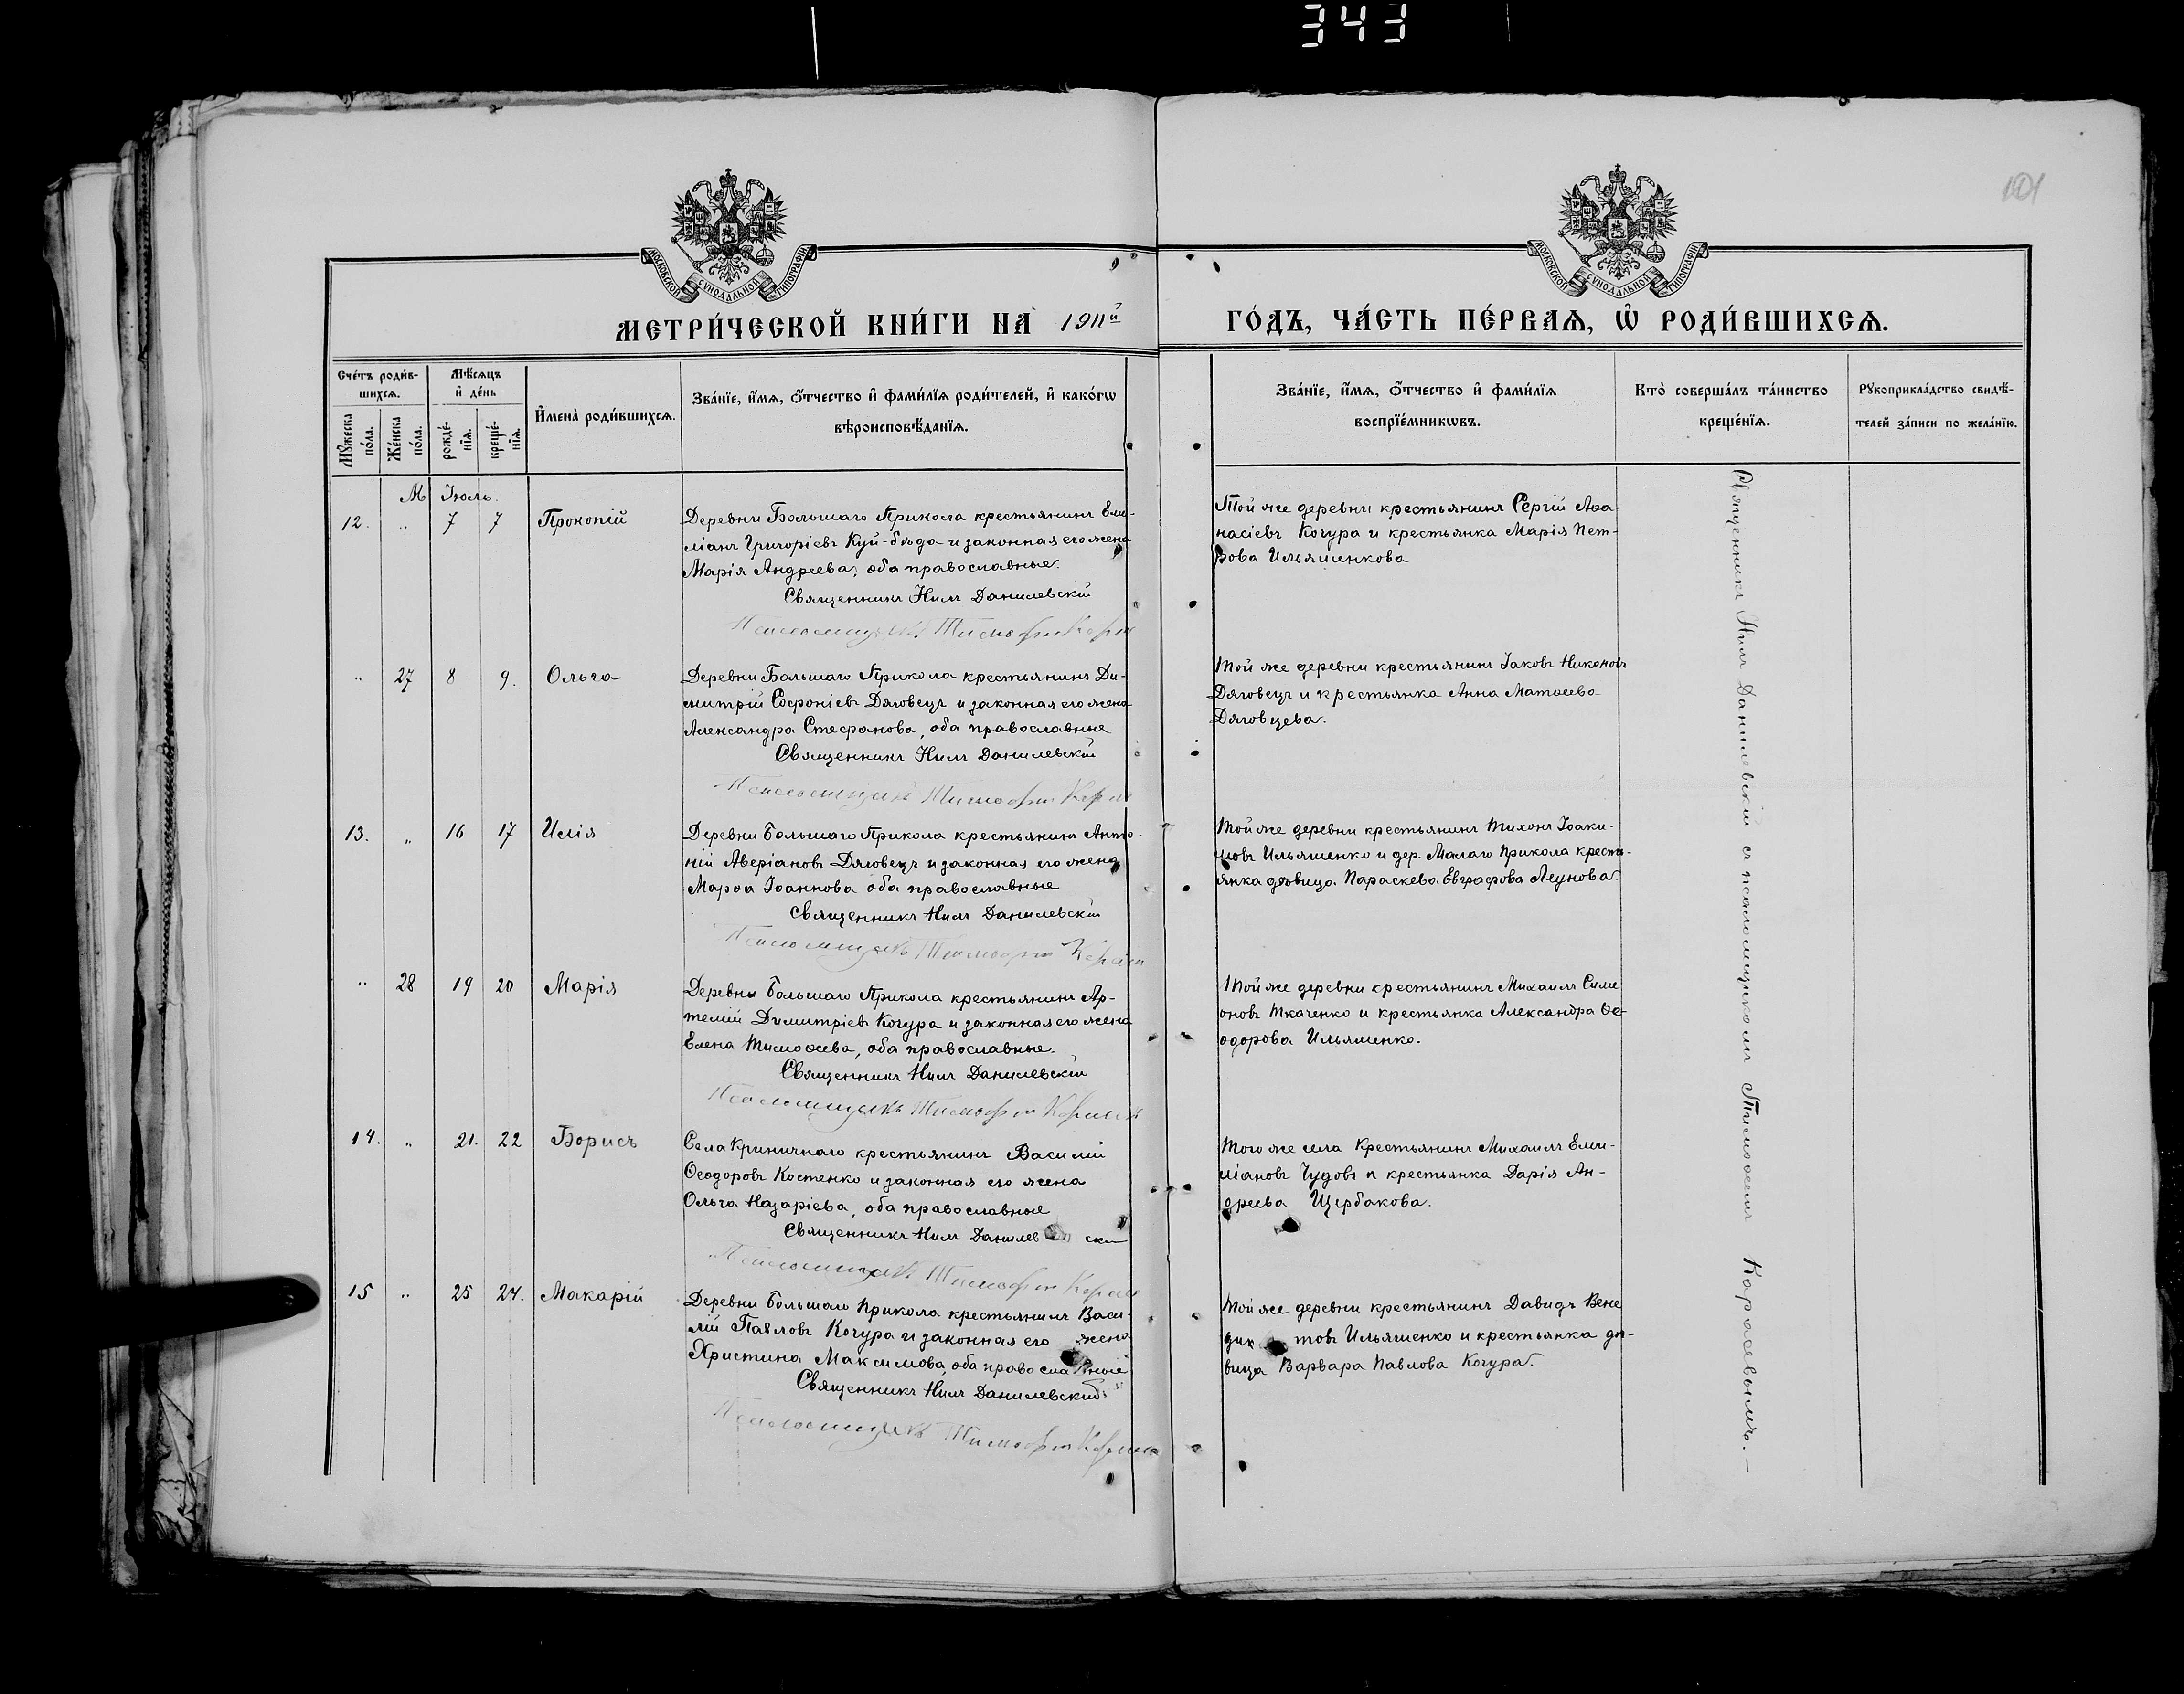 343
101
МОСКОВСКОЙ СѴНОДАЛЬНОЙ ТИПОГРАФІИ
МОСКОВСКОЙ СѴНОДАЛЬНОЙ ТИПОГРАФІИ
МЕТРИ́ЧЕСКОЙ КНИ́ГИ НА 1911й ГО́ДЪ, ЧА́СТЬ ПЕ́РВАѦ, Ѡ҆ РОДИ́ВШИХСѦ.
Сче́тъ роди́в-
шихсѧ.
Мꙋ́жеска по́ла.
Же́нска по́ла.
Мѣ́сѧцъ
и҆ де́нь
рожде́-
нїѧ.
креще́-
нїѧ.
И҆мена̀ роди́вшихсѧ.
Зва́нїе, и҆́мѧ, ѻ҆́тчество и҆ фами́лїѧ роди́телей, и҆ како́гѡ
вѣроисповѣ́данїѧ.
Зва́нїе, и҆́мѧ, ѻ҆́тчество и҆ фами́лїѧ
воспрїе́мникѡвъ.
Кто̀ соверша́лъ та́инство
креще́нїѧ.
Рꙋкоприкла́дство свидѣ́-
телей за́писи по жела́нїю.
М Іюль.
12. „ 7 7 Прокопій
Деревни Большаго Прикола крестьянинъ Еми-
ліанъ Григоріевъ Куй-бѣда и законная его жена
Марія Андреева, оба православные.
Священникъ Нилъ Данилевскій
Псаломщикъ Тимофей
Той же деревни крестьянинъ Сергій Аѳа-
насіевъ Кочура и крестьянка Марія Пет-
рова Ильяшенкова
„ 27 8 9. Ольга
Деревни Большаго Прикола крестьянинъ Ди-
митрій Софроніевъ Дяговецъ и законная его жена
Александра Стефанова, оба православные
Священникъ Нилъ Данилевскій
Псаломщикъ Тимофей
Той же деревни крестьянинъ Іаковъ Никоновъ
Дяговецъ и крестьянка Анна Матѳеева
Дяговцева.
13. „ 16 17 Илія
Деревни Большаго Прикола крестьянинъ Анто-
ній Аверіановъ Дяговецъ и законная его жена
Марѳа Іоаннова оба православные
Священникъ Нилъ Данилевскій
Псаломщикъ Тимофей
Той же деревни крестьянинъ Тихонъ Іоаки-
мовъ Ильяшенко и дер. Малаго Прикола кресть-
янка дѣвица Параскева Евграфова Леунова.
„ 28 19 20 Марія
Деревни Большаго Прикола крестьянинъ Ар-
темій Димитріевъ Кочура и законная его жена
Елена Тимоѳеева, оба православные.
Священникъ Нилъ Данилевскій
Псаломщикъ Тимофей
Той же деревни крестьянинъ Михаилъ Симе
оновъ Ткаченко и крестьянка Александра Ѳе-
одорова Ильяшенко.
14. „ 21. 22 Борисъ
Села Криничнаго крестьянинъ Василій
Ѳеодоровъ Костенко и законная его жена
Ольга Назаріева, оба православные
Священникъ Нилъ Данилевскій
Псаломщикъ Тимофей
Того же села крестьянинъ Михаилъ Еми-
ліановъ Чудовъ и крестьянка Дарія Ан-
дреева Щербакова.
15 „ 25 24. Макарій
Деревни Большаго Прикола крестьянинъ Васи-
лій Павловъ Кочура и законная его жена
Христина Максимова, оба православные
Священникъ Нилъ Данилевскій
Псаломщикъ Тимофей
Той же деревни крестьянинъ Давидъ Вене
диктовъ Ильяшенко и крестьянка дѣ-
вица Варвара Павлова Кочура.
Священникъ Нилъ Данилевскій съ псаломщикомъ Тимоѳеемъ Карасевымъ.